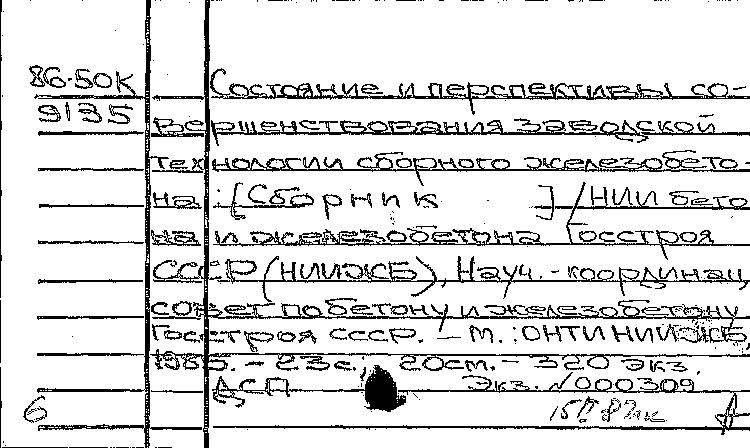 86-50К Состояние и перспективы со-
9135 вершенствования заводской
технологии сборного железобето-
на: [Сборник ] / НИИ бето
на и железобетона Госстроя
СССР (НИИЖБ), Науч.-координац.
совет по бетону и железобетону
Госстроя СССР. - М.: ОНТИ НИИЖБ,
1985. - 23с.; 20см. - 320 экз.
ДСП Экз. №000309
6